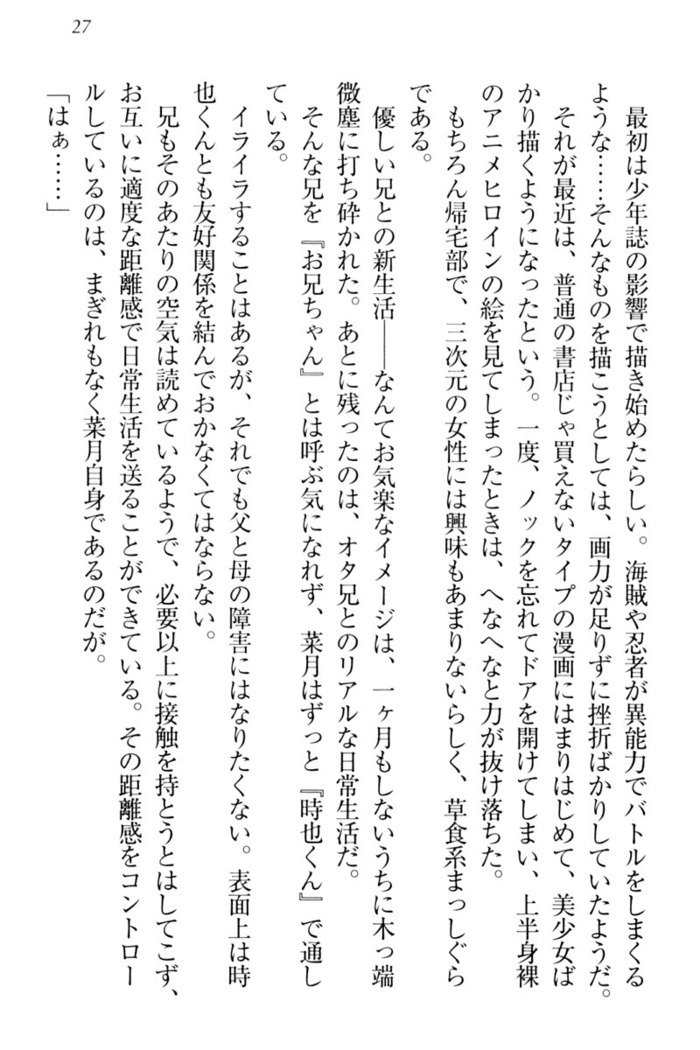 27
最初は少年誌の影響で描き始めたらしい。海賊や忍者が異能力でバトルをしまくる
ような……そんなものを描こうとしては、画力が足りずに挫折ばかりしていたようだ。
それが最近は、普通の書店じゃ買えないタイプの漫画にはまりはじめて、美少女ば
かり描くようになったという。一度、ノックを忘れてドアを開けてしまい、上半身裸
のアニメヒロインの絵を見てしまったときは、へなへなと力が抜け落ちた。
もちろん帰宅部で、三次元の女性には興味もあまりないらしく、草食系まっしぐら
である。
優しい兄との新生活――なんてお気楽なイメージは、一ヶ月もしないうちに木っ端
微塵に打ち砕かれた。あとに残ったのは、オタ兄とのリアルな日常生活だ。
そんな兄を『お兄ちゃん』とは呼ぶ気になれず、菜月はずっと『時也くん』で通し
ている。
イライラすることはあるが、それでも父と母の障害にはなりたくない。表面上は時
也くんとも友好関係を結んでおかなくてはならない。
兄もそのあたりの空気は読めているようで、必要以上に接触を持とうとはしてこず、
お互いに適度な距離感で日常生活を送ることができている。その距離感をコントロー
ルしているのは、まぎれもなく菜月自身であるのだが。
「はぁ……」